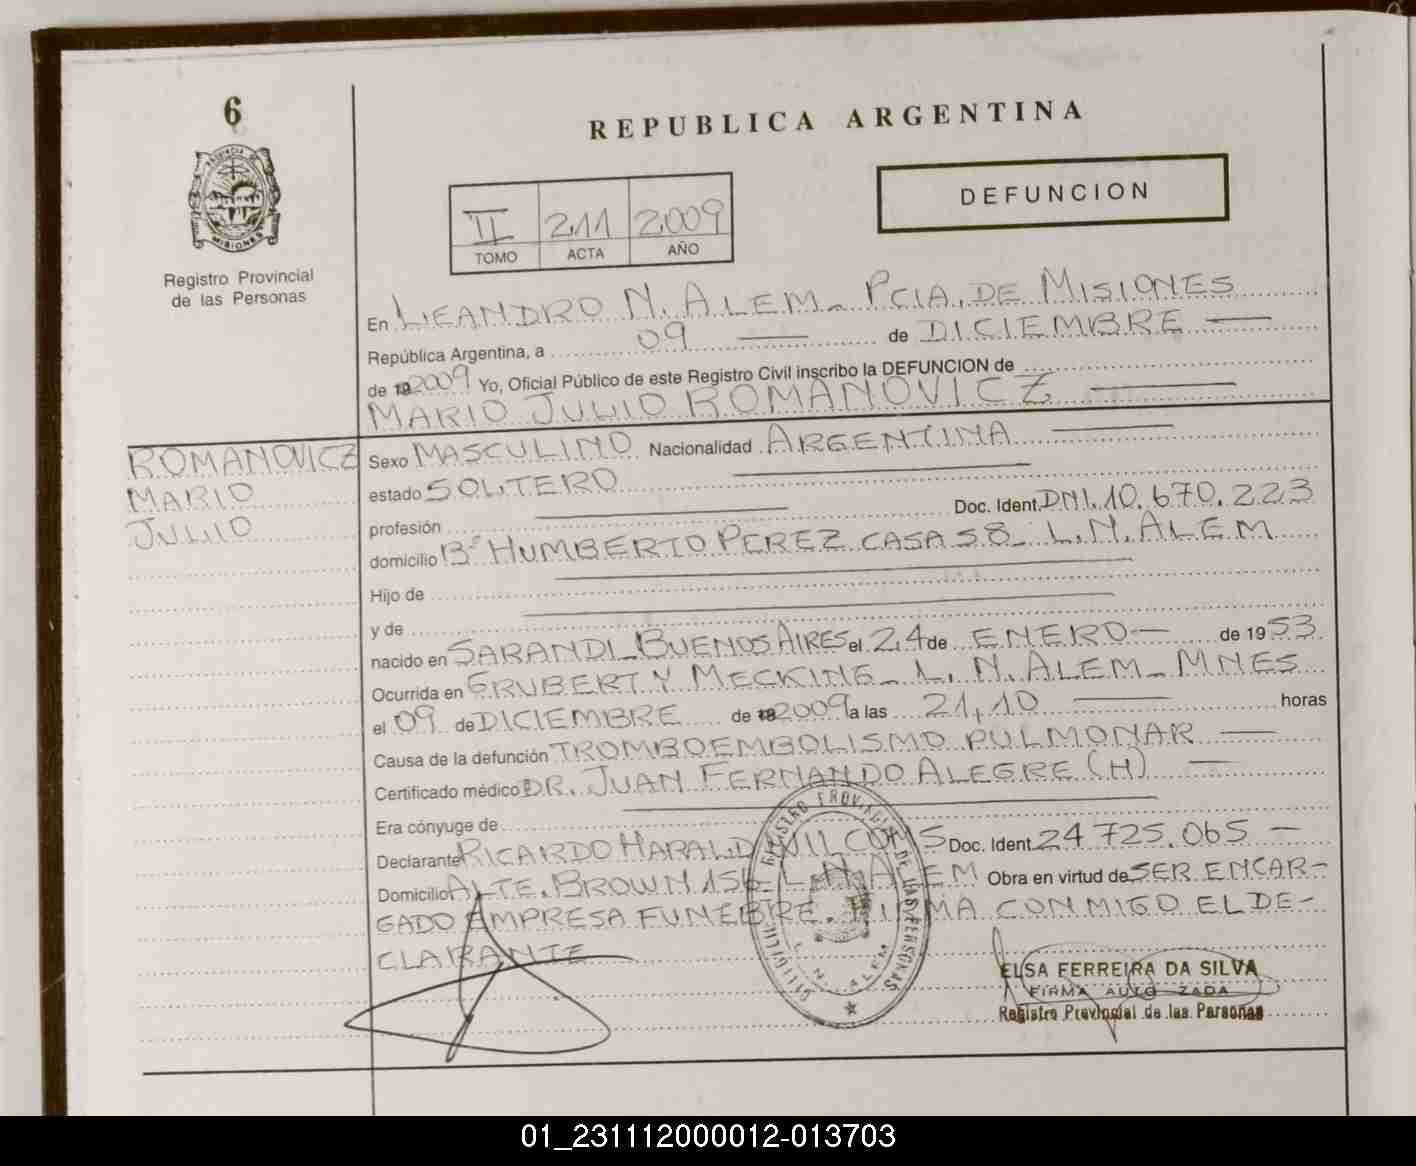 6
PROVINCIA DE
MISIONES
Registro Provincial
de las Personas
REPUBLICA ARGENTINA
DEFUNCION
II 211 2009
TOMO ACTA AÑO
En LEANDRO N. ALEM - PCIA. DE MISIONES
República Argentina, a 09 de DICIEMBRE
de 2009 Yo, Oficial Público de este Registro Civil inscribo la DEFUNCION de
MARIO JULIO ROMANOVICZ
ROMANOVICZ
MARIO
JULIO
Sexo MASCULINO Nacionalidad ARGENTINA
estado SOLTERO
profesión Doc. Ident. DNI. 10.670.223
domicilio Bº HUMBERTO PEREZ CASA 58 - L.N. ALEM
Hijo de
y de
nacido en SARANDI - BUENOS AIRES el 24 de ENERO de 1953
Ocurrida en GRUBERT Y MECKING - L. N. ALEM - MNES
el 09 de DICIEMBRE de 2009 a las 21,10 horas
Causa de la defunción TROMBOEMBOLISMO PULMONAR
Certificado médico DR. JUAN FERNANDO ALEGRE (H)
Era cónyuge de
Declarante RICARDO HARALD Doc. Ident. 24 725.065
Domicilio ALTE. BROWN 156 - L. N. ALEM Obra en virtud de SER ENCAR-
GADO EMPRESA FUNEBRE. FIRMA CONMIGO EL DE-
CLARANTE
REGISTRO PROVINCIAL DE LAS PERSONAS
L. N. ALEM
ELSA FERREIRA DA SILVA
FIRMA AUTORIZADA
Registro Provincial de las Personas
01_231112000012-013703